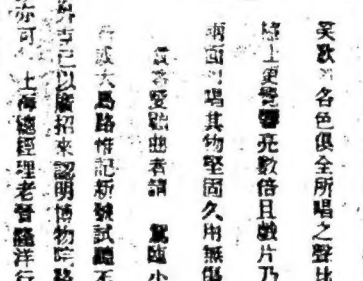 笑歌各色俱全所唱之聲比
上更覺響亮數倍且戲片乃
兩面唱其物堅固久用無傷
愛聽曲者請 駕臨小
大馬路惟記新號試聽不
已以廣招來認明博物院路
亦可 上海總經理老晉隆洋行